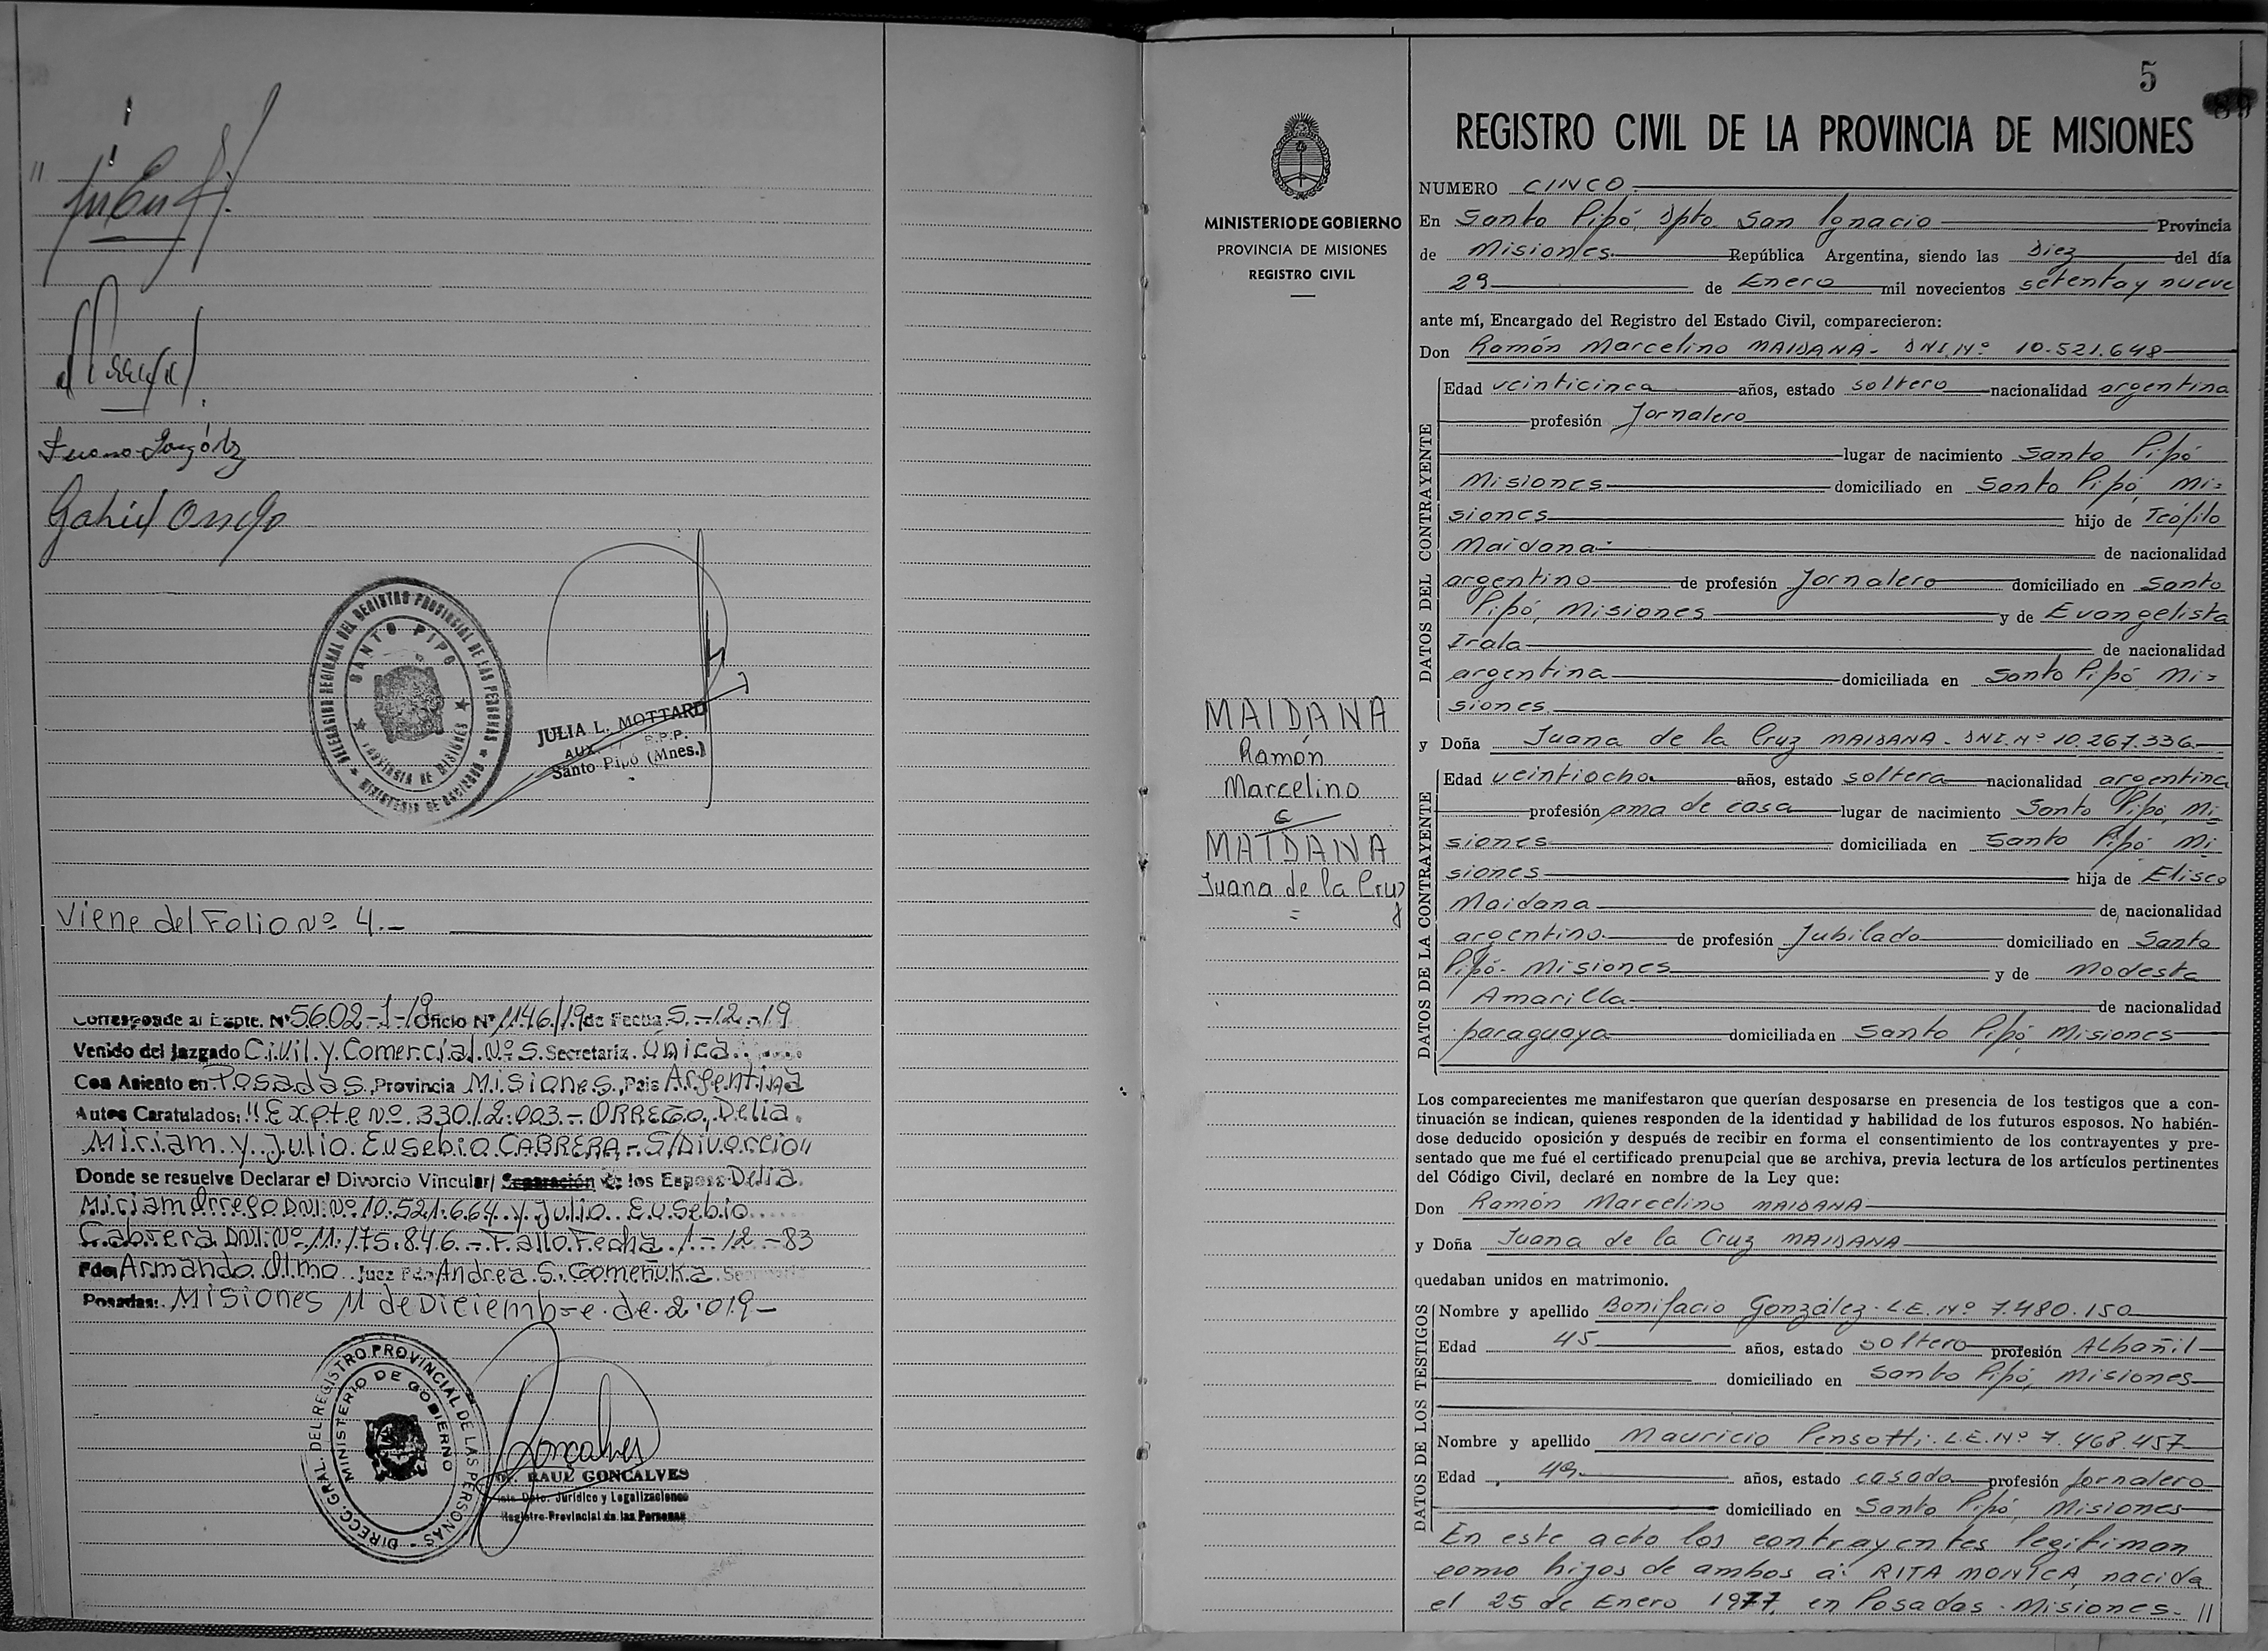 Gabriel Orrego
DELEGACION REGIONAL DEL REGISTRO PROVINCIAL DE LAS PERSONAS
MINISTERIO DE GOBIERNO
SANTO PIPO
PROVINCIA DE MISIONES
JULIA L. MOTTARD
AUX. R.P.P.
Santo Pipó (Mnes.)
Viene del Folio Nº 4.-
Corresponde al Expte. Nº 5602-1-19 Oficio Nº 1146/19 de Fecha 5-12-19
Venido del Juzgado Civil y Comercial Nº 5. Secretaria Unica
Con Asiento en Posadas, Provincia Misiones, Pais Argentina
Autos Caratulados: "Expte Nº 330/2.003.- ORREGO, Delia
Miriam y Julio Eusebio CABRERA.- S/Divorcio"
Donde se resuelve Declarar el Divorcio Vincular/ Separación de los Esposos Delia
Miriam Orrego DNI Nº 10.521.664 y Julio Eusebio
Cabrera DNI Nº 11.175.846.- Fallo Fecha 1-12-83
Fdo: Armando Olmo Juez Fdo. Andrea S. Gomeñuka Secretaria
Posadas: Misiones 11 de Diciembre de 2.019-
DIRECC. GRAL. DEL REGISTRO PROVINCIAL DE LAS PERSONAS
MINISTERIO DE GOBIERNO
Goncalves
Dr. RAUL GONCALVES
Dpto. Jurídico y Legalizaciones
Registro Provincial de las Personas
MINISTERIO DE GOBIERNO
PROVINCIA DE MISIONES
REGISTRO CIVIL
MAIDANA
Ramón
Marcelino
c/
MAIDANA
Juana de la Cruz
5
89
REGISTRO CIVIL DE LA PROVINCIA DE MISIONES
NUMERO CINCO
En Santo Pipó, Dpto. San Ignacio Provincia
de Misiones República Argentina, siendo las Diez del día
29 de Enero mil novecientos setenta y nueve
ante mí, Encargado del Registro del Estado Civil, comparecieron:
Don Ramón Marcelino MAIDANA- DNI.Nº 10.521.648
DATOS DEL CONTRAYENTE
Edad veinticinco años, estado soltero nacionalidad argentina
profesión Jornalero
lugar de nacimiento Santo Pipó
Misiones domiciliado en Santo Pipó, Mi=
siones hijo de Teófilo
Maidana de nacionalidad
argentino de profesión Jornalero domiciliado en Santo
Pipó, Misiones y de Evangelista
Irala de nacionalidad
argentina domiciliada en Santo Pipó Mi=
siones
y Doña Juana de la Cruz MAIDANA - DNI.Nº 10.267.336
DATOS DE LA CONTRAYENTE
Edad veintiocho años, estado soltera nacionalidad argentina
profesión ama de casa lugar de nacimiento Santo Pipó, Mi=
siones domiciliada en Santo Pipó Mi=
siones hija de Eliseo
Maidana de nacionalidad
argentino de profesión Jubilado domiciliado en Santo
Pipó- Misiones y de Modesta
Amarilla de nacionalidad
paraguaya domiciliada en Santo Pipó, Misiones
Los comparecientes me manifestaron que querían desposarse en presencia de los testigos que a con-
tinuación se indican, quienes responden de la identidad y habilidad de los futuros esposos. No habién-
dose deducido oposición y después de recibir en forma el consentimiento de los contrayentes y pre-
sentado que me fué el certificado prenupcial que se archiva, previa lectura de los artículos pertinentes
del Código Civil, declaré en nombre de la Ley que:
Don Ramón Marcelino MAIDANA
y Doña Juana de la Cruz MAIDANA
quedaban unidos en matrimonio.
DATOS DE LOS TESTIGOS
Nombre y apellido Bonifacio González. L.E. Nº 7.480.150
Edad 45 años, estado soltero profesión Albañil
domiciliado en Santo Pipó, Misiones
Nombre y apellido Mauricio Pensotti. L.E. Nº 7.468.457
Edad 49 años, estado casado profesión Jornalero
domiciliado en Santo Pipó, Misiones
En este acto los contrayentes legitiman
como hijos de ambos a: RITA MONICA, nacida
el 25 de Enero 1977, en Posadas - Misiones. //